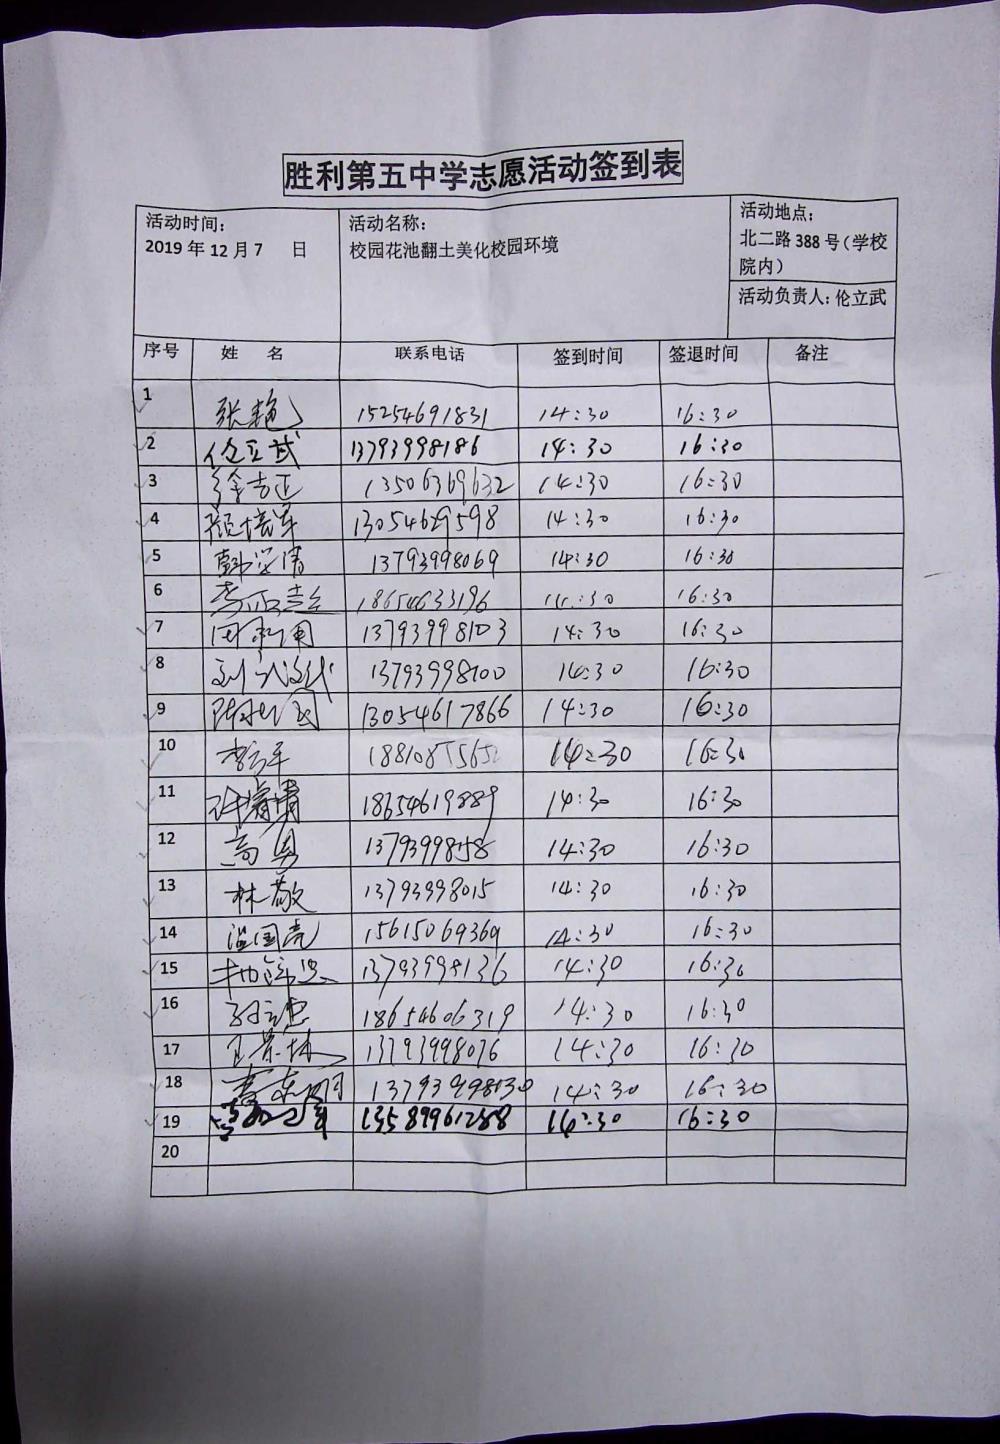 胜利第五中学志愿活动签到表
活动时间： 活动名称： 活动地点：
2019 年 12 月 7 日 校园花池翻土美化校园环境 北二路 388 号（学校
院内）
活动负责人：伦立武
序号 姓 名 联系电话 签到时间 签退时间 备注
1 张艳 15254691831 14:30 16:30
2 伦立武 13793998186 14:30 16:30
3 13506369632 14:30 16:30
4 13054629598 14:30 16:30
5 13793998069 14:30 16:30
6 18654633196 14:30 16:30
7 13793998103 14:30 16:30
8 13793998100 14:30 16:30
9 13054617866 14:30 16:30
10 14:30 16:30
11 18654619889 14:30 16:30
12 高勇 13793998158 14:30 16:30
13 林敬 13793998015 14:30 16:30
14 15615069369 14:30 16:30
15 13793998136 14:30 16:30
16 18654606319 14:30 16:30
17 王景林 13793998076 14:30 16:30
18 13793998130 14:30 16:30
19 13589961288 14:30 16:30
20